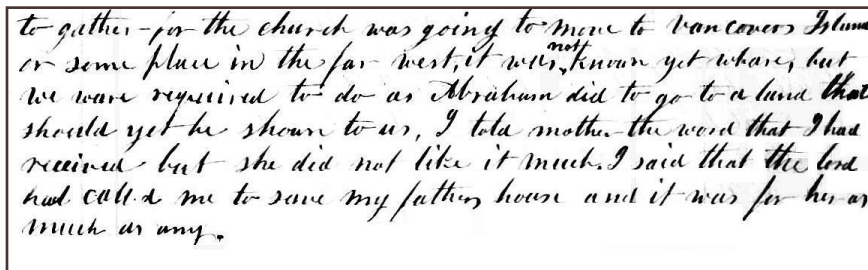 to gather for the church was going to move to vancovers Island
or some place in the far west, it was not known yet whare, but
we ware required to do as Abraham did to go to a land that
should yet be shown to us, I told mother the word that I had
received but she did not like it much. I said that the lord
had call.d me to save my fathers house and it was for her as
much as any.